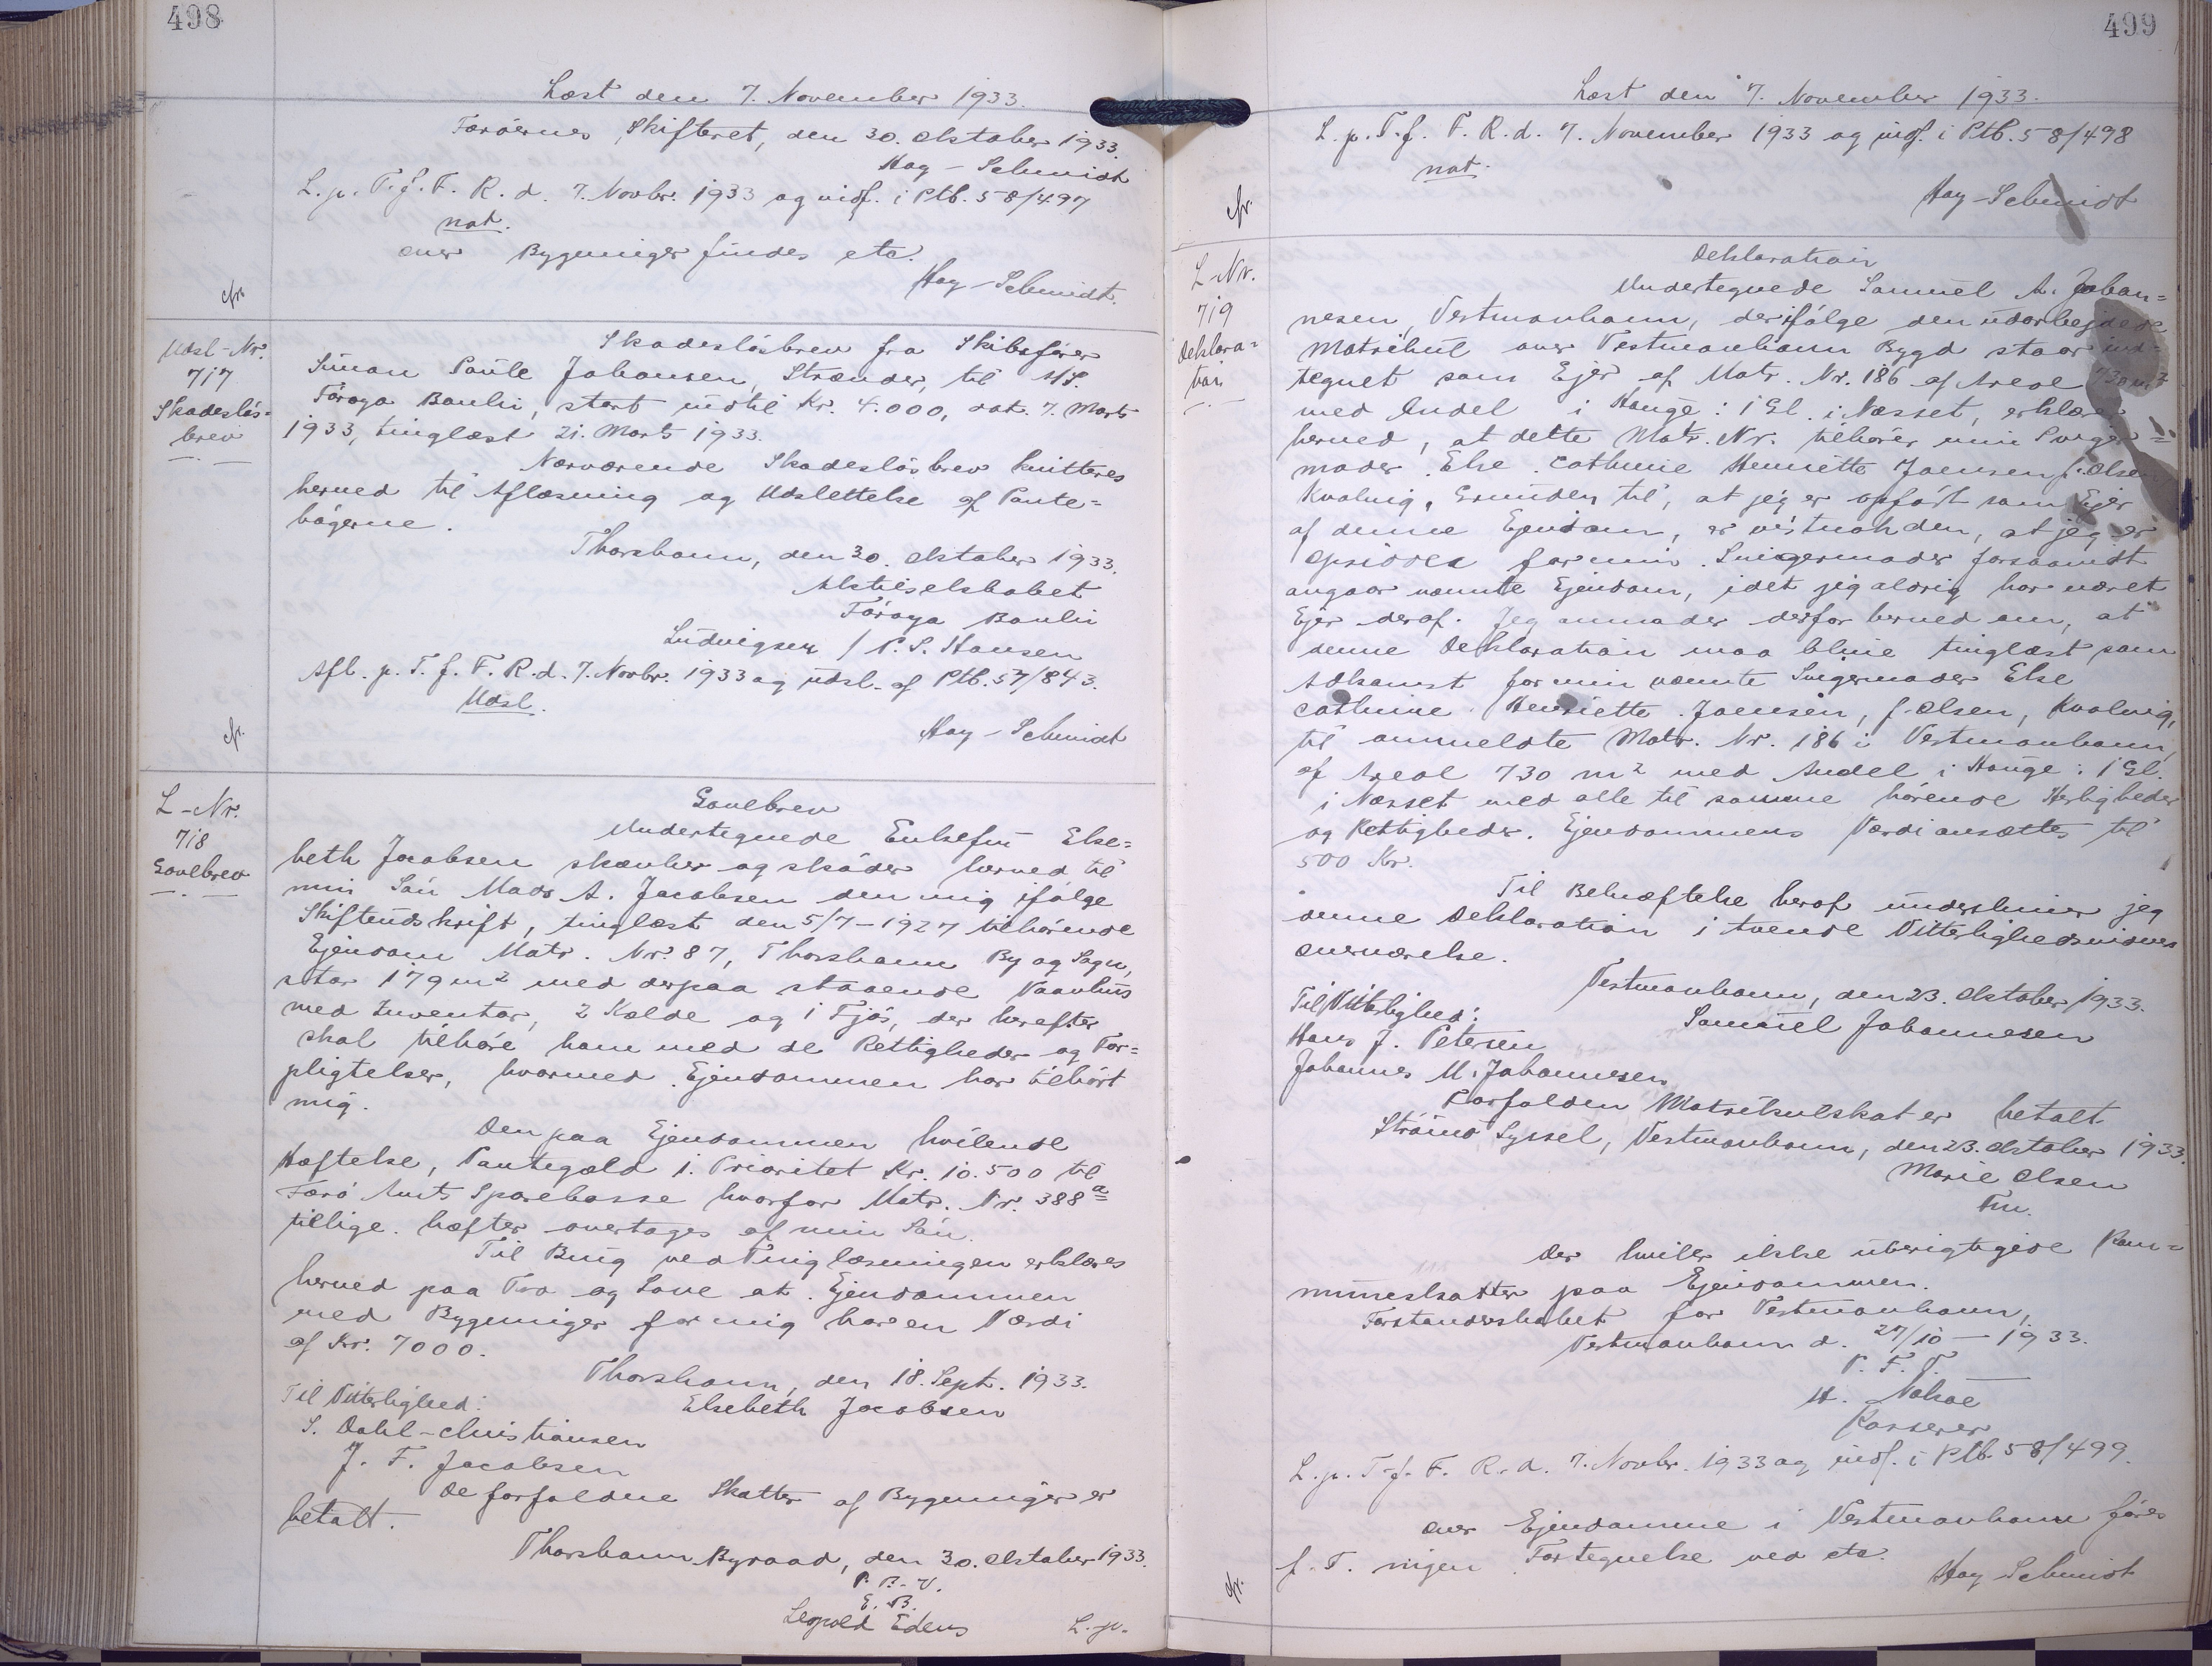 498
Læst den 7. November 1933.
Færøernes Skifteret, den 30. Oktober 1933.
Hay-Schmidt
L. p. T. f. F. R. d. 7. Novbr. 1933 og indf. i Ptb. 58/497
not.
over Bygninger findes etc.
Hay-Schmidt.
cfr.
Udsl-Nr.
717
Skadesløs=
brev
Skadesløsbrev fra Skibsfører
Simon Paule Johansen, Strænder, til A/S.
Føroya Banki, stort indtil Kr. 4.000, dat. 7. Marts
1933, tinglæst 21. Marts 1933.
Nærværende Skadesløsbrev kvitteres
herved til Aflæsning og Udslettelse af Pante=
bøgerne.
Thorshavn, den 30. Oktober 1933.
Aktieselskabet
Føroya Banki
Ludvigsen / P. S. Hansen
Afl. p. T. f. F. R. d. 7. Novbr. 1933 og udsl. af Ptb. 57/843.
Udsl.
Hay-Schmidt
cfr.
L-Nr.
718
Gavebrev
Gavebrev
Undertegnede Enkefru Else=
beth Jacobsen skænker og skøder herved til
min Søn Mads A. Jacobsen den mig ifølge
Skifteudskrift, tinglæst den 5/7-1927 tilhørende
Ejendom Matr. Nr. 87, Thorshavn By og Sogn,
stor 179 m² med derpaa staaende Vaanhus
med Inventar, 2 Kælde og 1 Fjøs, der herefter
skal tilhøre ham med de Rettigheder og For=
pligtelser, hvormed Ejendommen har tilhørt
mig.
Den paa Ejendommen hvilende
Hæftelse, Pantegæld 1. Prioritet Kr. 10.500 til
Færø Amts Sparekasse hvorfor Matr. Nr. 388 a
tillige hæfter overtages af min Søn.
Til Brug ved Tinglæsningen erklæres
herved paa Tro og Love at Ejendommen
med Bygninger for mig har en Værdi
af Kr. 7000.
Thorshavn, den 18. Sept. 1933.
Til Vitterlighed:
Elsebeth Jacobsen
S. Dahl-Christiansen
J. F. Jacobsen
De forfaldne Skatter af Bygninger er
betalt.
Thorshavn Byraad, den 30. Oktober 1933.
P. B. V.
E. B.
Leopold Edens
L. p.
499
Læst den 7. November 1933.
L. p. T. f. F. R. d. 7. November 1933 og indf. i Ptb. 58/498
not.
Hay-Schmidt
cfr.
L-Nr.
719
Deklara=
tion
Deklaration
Undertegnede Samuel A. Johan=
nesen, Vestmanhavn, der ifølge den udarbejdede
Matrikul over Vestmanhavn Bygd staar ind=
tegnet som Ejer af Matr. Nr. 186 af Areal 730 m²
med Andel i Hauge: 1 Gl. i Næsset, erklærer
herved, at dette Matr. Nr. tilhører min Sviger=
moder Else Cathrine Henriette Joensen f. Olsen
Kvalvig, Grunden til, at jeg er opført som Ejer
af denne Ejendom, er vistnok den, at jeg er
Opsidder for min Svigermoder forsaavidt
angaar nævnte Ejendom, idet jeg aldrig har været
Ejer deraf. Jeg anmoder derfor herved om, at
denne Deklaration maa blive tinglæst som
Adkomst for min nævnte Svigermoder Else
Cathrine Henriette Joensen, f. Olsen, Kvalvig,
til anmeldte Matr. Nr. 186 i Vestmanhavn,
af Areal 730 m² med Andel i Hauge: 1 Gl.
i Næsset med alle til samme hørende Herligheder
og Rettigheder. Ejendommens Værdi ansættes til
500 Kr.
Til Bekræftelse heraf underskriver jeg
denne Deklaration i tvende Vitterlighedsvidners
Overværelse.
Vestmanhavn, den 23. Oktober 1933.
Til Vitterlighed:
Samúel Johannesen
Hans J. Petersen
Johannes M. Johannesen
Forfalden Matrikulskat er betalt
Strømø Syssel, Vestmanhavn, den 23. Oktober 1933.
Marie Olsen
Fm.
Der hviler ikke uberigtigede Kom=
muneskatter paa Ejendommen.
Forstanderskabet for Vestmanhavn,
Vestmanhavn d. 27/10 - 1933.
P. F. V.
H. Nolsøe
Kasserer
L. p. T. f. F. R. d. 7. Novbr. 1933 og indf. i Ptb. 58/499.
over Ejendomme i Vestmanhavn føres
f. T. ingen Fortegnelse ved etc.
Hay Schmidt
cfr.